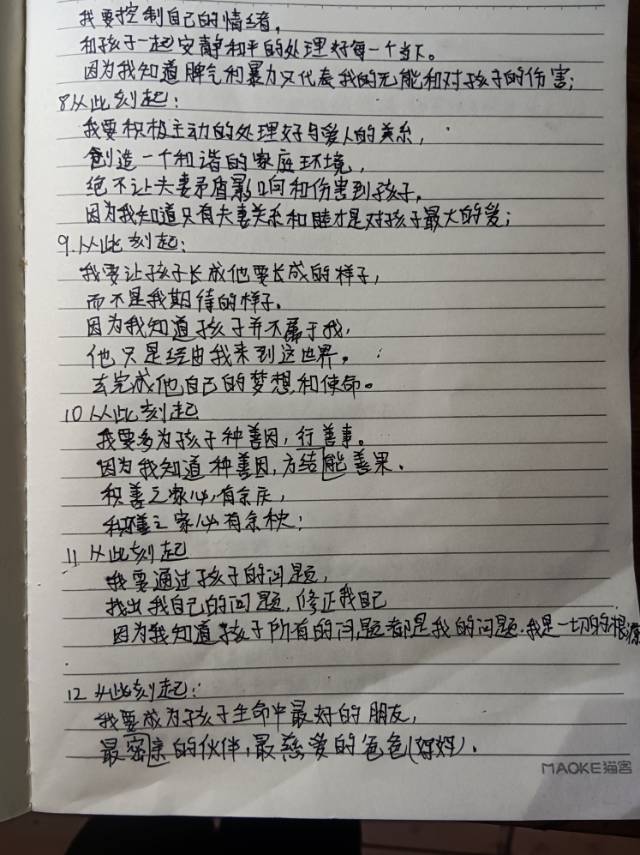 我要控制自己的情绪,
和孩子一起安静和平的处理好每一个当下。
因为我知道脾气和暴力只代表我的无能和对孩子的伤害;
8从此刻起:
我要积极主动的处理好与爱人的关系,
创造一个和谐的家庭环境,
绝不让夫妻矛盾影响和伤害到孩子,
因为我知道只有夫妻关系和睦才是对孩子最大的爱;
9.从此刻起:
我要让孩子长成他要长成的样子,
而不是我期待的样子.
因为我知道孩子并不属于我,
他只是经由我来到这世界。
去完成他自己的梦想和使命。
10从此刻起
我要多为孩子种善因,行善事。
因为我知道种善因,方结能善果.
积善之家必有余庆,
积善之家必有余秧;
11 从此刻起
我要通过孩子的问题,
找出我自己的问题,修正我自己
因为我知道孩子所有的问题都是我的问题.我是一切的根源
12 从此刻起:
我要成为孩子生命中最好的朋友,
最密亲的伙伴,最慈爱的爸爸(妈妈).
MAOKE猫客